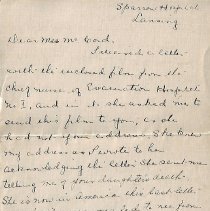 Sparrow Hospital
Lansing
Dear Mrs. McCord,
I received a letter
with the enclosed film from the
chief nurse of Evacuation Hospital
No 1, and in it she asked me to
send this film to you, as she
had not your address. She knew
my address as I wrote to her
acknowledging the letter she sent me
telling me of your daughter's death.
She is now in America this last letter